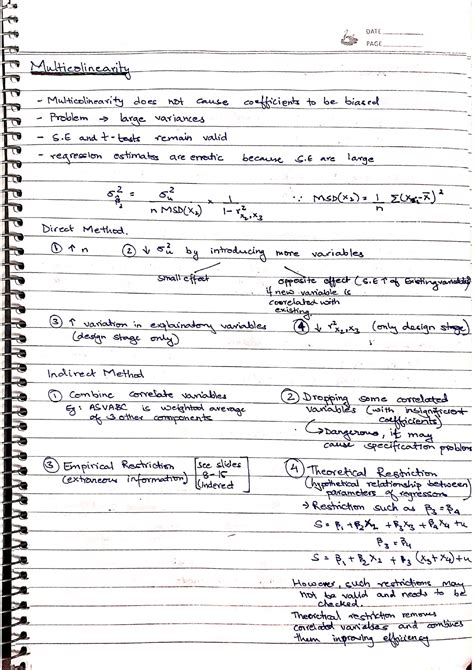 DATE
PAGE
Multicolinearity
- Multicolinearity does not cause coefficients to be biased
- Problem → large variances
- S.E and t-tests remain valid
- regression estimates are erratic because S.E are large
σ²_β̂₂ = σ²_u / n MSD(X₂) × 1 / 1-r²_x₂,x₃ ∵ MSD(X₂) = 1/n Σ(X₂ᵢ-X̄)²
Direct Method.
① ↑ n ② ↓ σ²_u by introducing more variables
small effect opposite effect (S.E ↑ of Existing variable)
if new variable is
correlated with
existing.
③ ↑ variation in explainatory variables ④ ↓ r²_x₂,x₃ (only design stage)
(design stage only)
Indirect Method
① Combine correlate variables
Eg: ASVABC is weighted average
of 3 other components
② Dropping some correlated
variables (with insignificant
coefficients)
↳ Dangerous, it may
cause specification problem
③ Empirical Restriction
(extraneous information)
[See slides
8-15
Indirect]
④ Theoretical Restriction
(hypothetical relationship between
parameters of regressors)
→ Restriction such as β₃=β₄
S = β₁+β₂X₂ + β₃X₃ + β₄X₄ + u
β₃ = β₄
S = β₁ + β₂X₂ + β₃(X₃+X₄)+u
However, such restrictions may
not be valid and needs to be
checked.
Theoretical restriction removes
correlated variables and combines
them improving efficiency